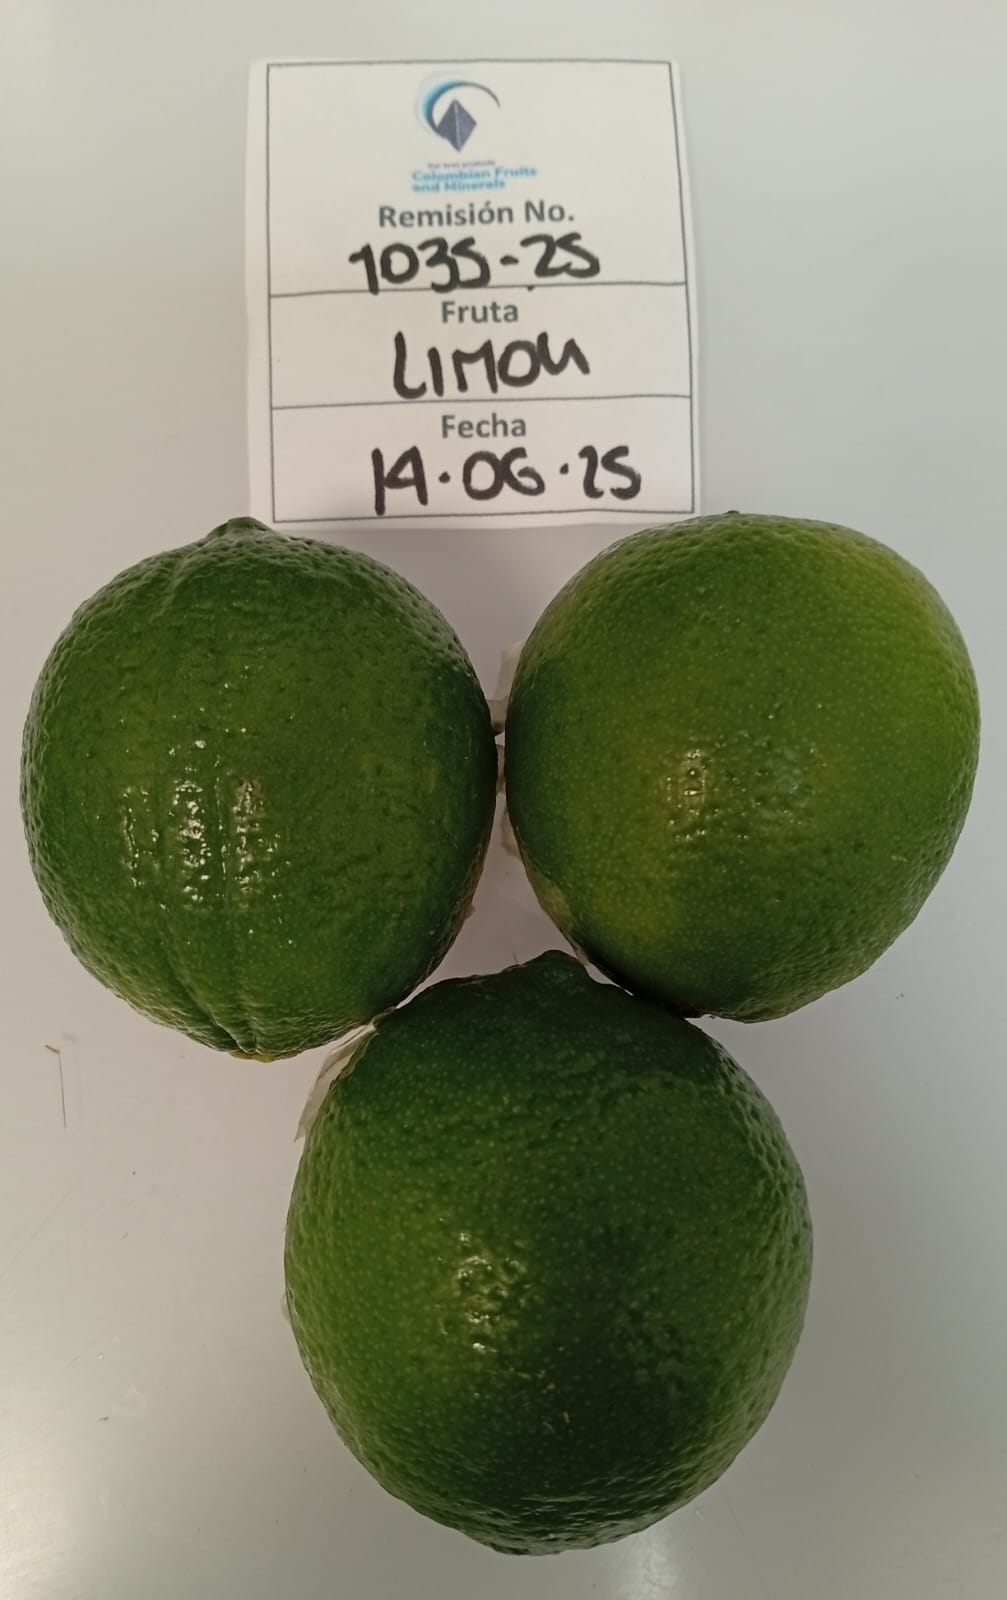 Our best products
Colombian Fruits
and Minerals
Remisión No.
1035-25
Fruta
LIMON
Fecha
14.06.25